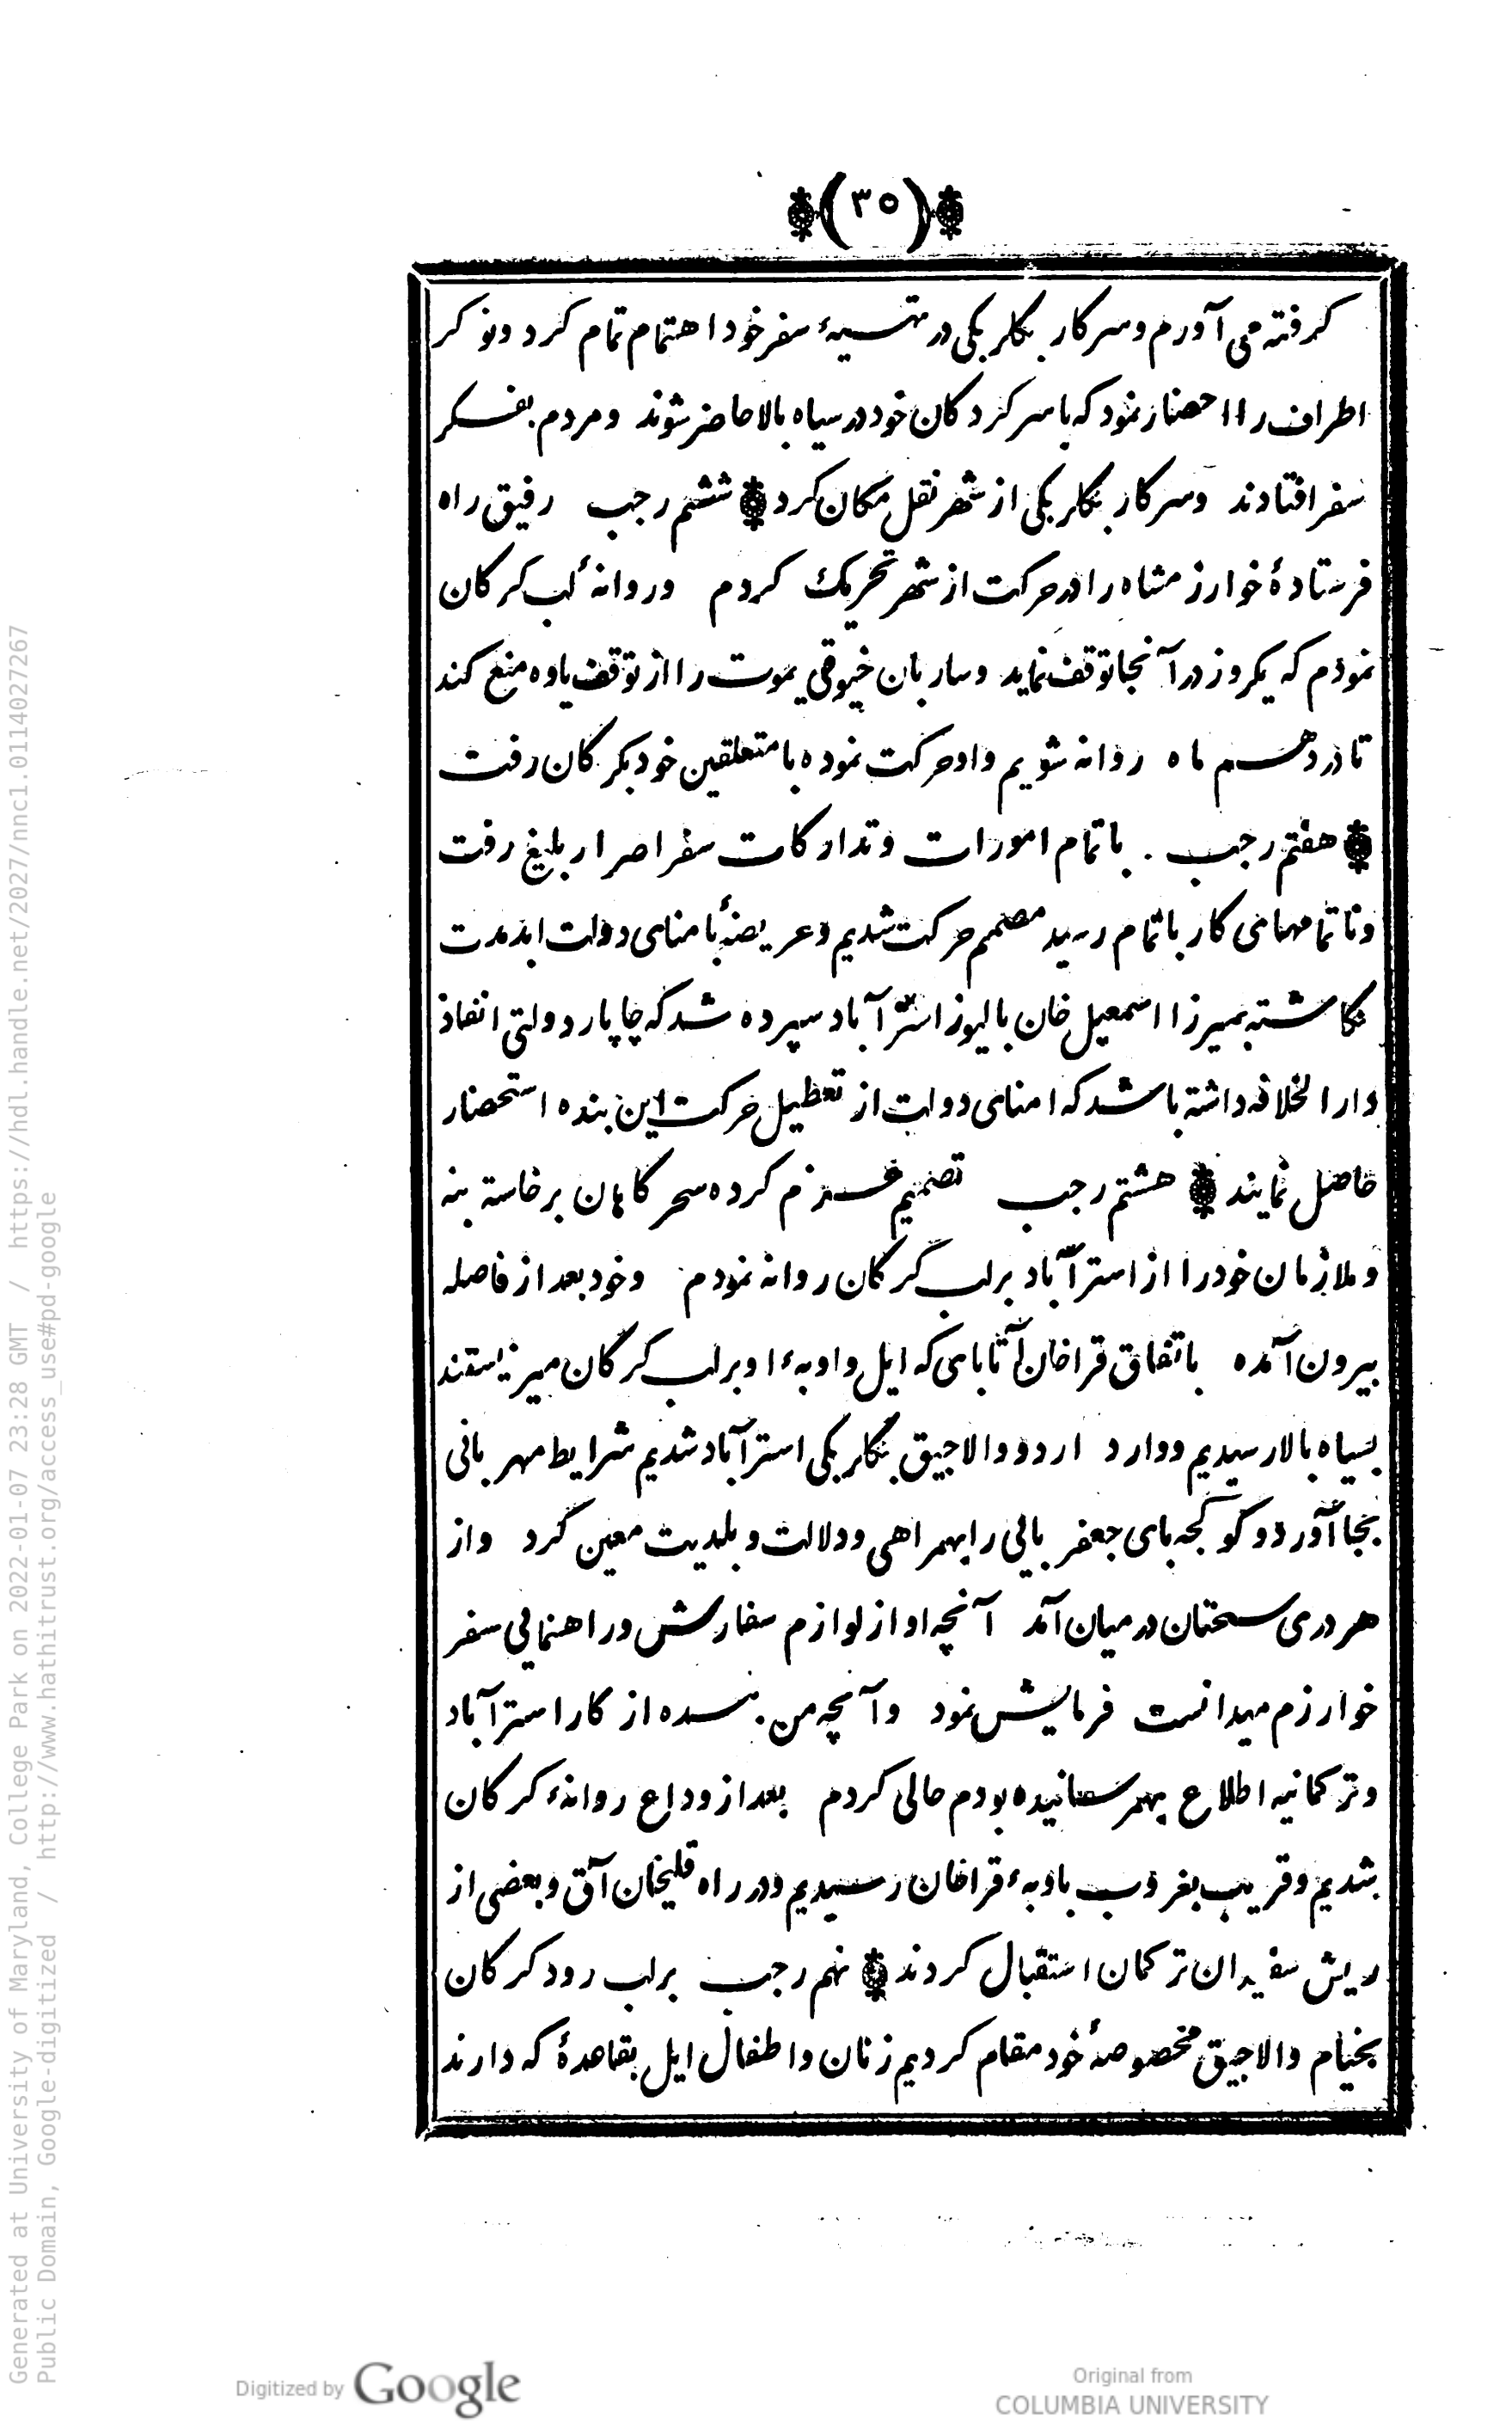 (٣٥)
كرفته مى آورم وسركار بكلربكى در تهسيهٔ سفر خود اهتمام تمام كرد ونوكر
اطراف را احضار نمود كه با سركردكان خود در سياه بالا حاضر شوند ومردم بفكر
سفر افتادند وسركار بكلربكى از شهر نقل مكان كرد ششم رجب رفيق راه
فرستادهٔ خوارزمشاه را در حركت از شهر تحريك كردم وروانهٔ لب كركان
نمودم كه يكروز در آنجا توقف نمايد وساربان خيوقى يموت را از توقف ياوه منع كند
تا در دهم ماه روانه شويم واو حركت نموده با متعلقين خود بكركان رفت
هفتم رجب . با تمام امورات وتداركات سفر اصرار بليغ رفت
وناتمامهاى كار باتمام رسيد مصمم حركت شديم وعريضهٔ بامناى دولت ابدمدت
نكاشته بميرزا اسمعيل خان باليوز استرآباد سپرده شد كه چاپار دولتى انفاذ
دار الخلافه داشته باشد كه امناى دولت از تعطيل حركت اين بنده استحضار
حاصل نمايند هشتم رجب تصميم عزم كرده سحركاهان برخاسته بنه
وملازمان خود را از استرآباد بر لب كركان روانه نمودم وخود بعد از فاصله
بيرون آمده باتفاق قراخان آتاباى كه ايل واوبهٔ او بر لب كركان ميزيستند
بسياه بالا رسيديم ووارد اردو والاجيق بكلربكى استرآباد شديم شرايط مهربانى
بجا آورد وكوكجه باى جعفر بايى را بهمراهى ودلالت وبلديت معين كرد واز
هر درى سخنان در ميان آمد آنچه او از لوازم سفارش وراهنمايى سفر
خوارزم ميدانست فرمايش نمود وآنچه من بنده از كار استرآباد
وتركمانيه اطلاع بهمرسانيده بودم حالى كردم بعد از وداع روانهٔ كركان
شديم وقريب بغروب باوبهٔ قراخان رسيديم ودر راه قليخان آق وبعضى از
ريش سفيدان تركمان استقبال كردند نهم رجب بر لب رود كركان
بخيام والاجيق مخصوصهٔ خود مقام كرديم زنان واطفال ايل بقاعدهٔ كه دارند
Generated at University of Maryland, College Park on 2022-01-07 23:28 GMT / https://hdl.handle.net/2027/nnc1.0114027267
Public Domain, Google-digitized / http://www.hathitrust.org/access_use#pd-google
Digitized by Google
Original from
COLUMBIA UNIVERSITY